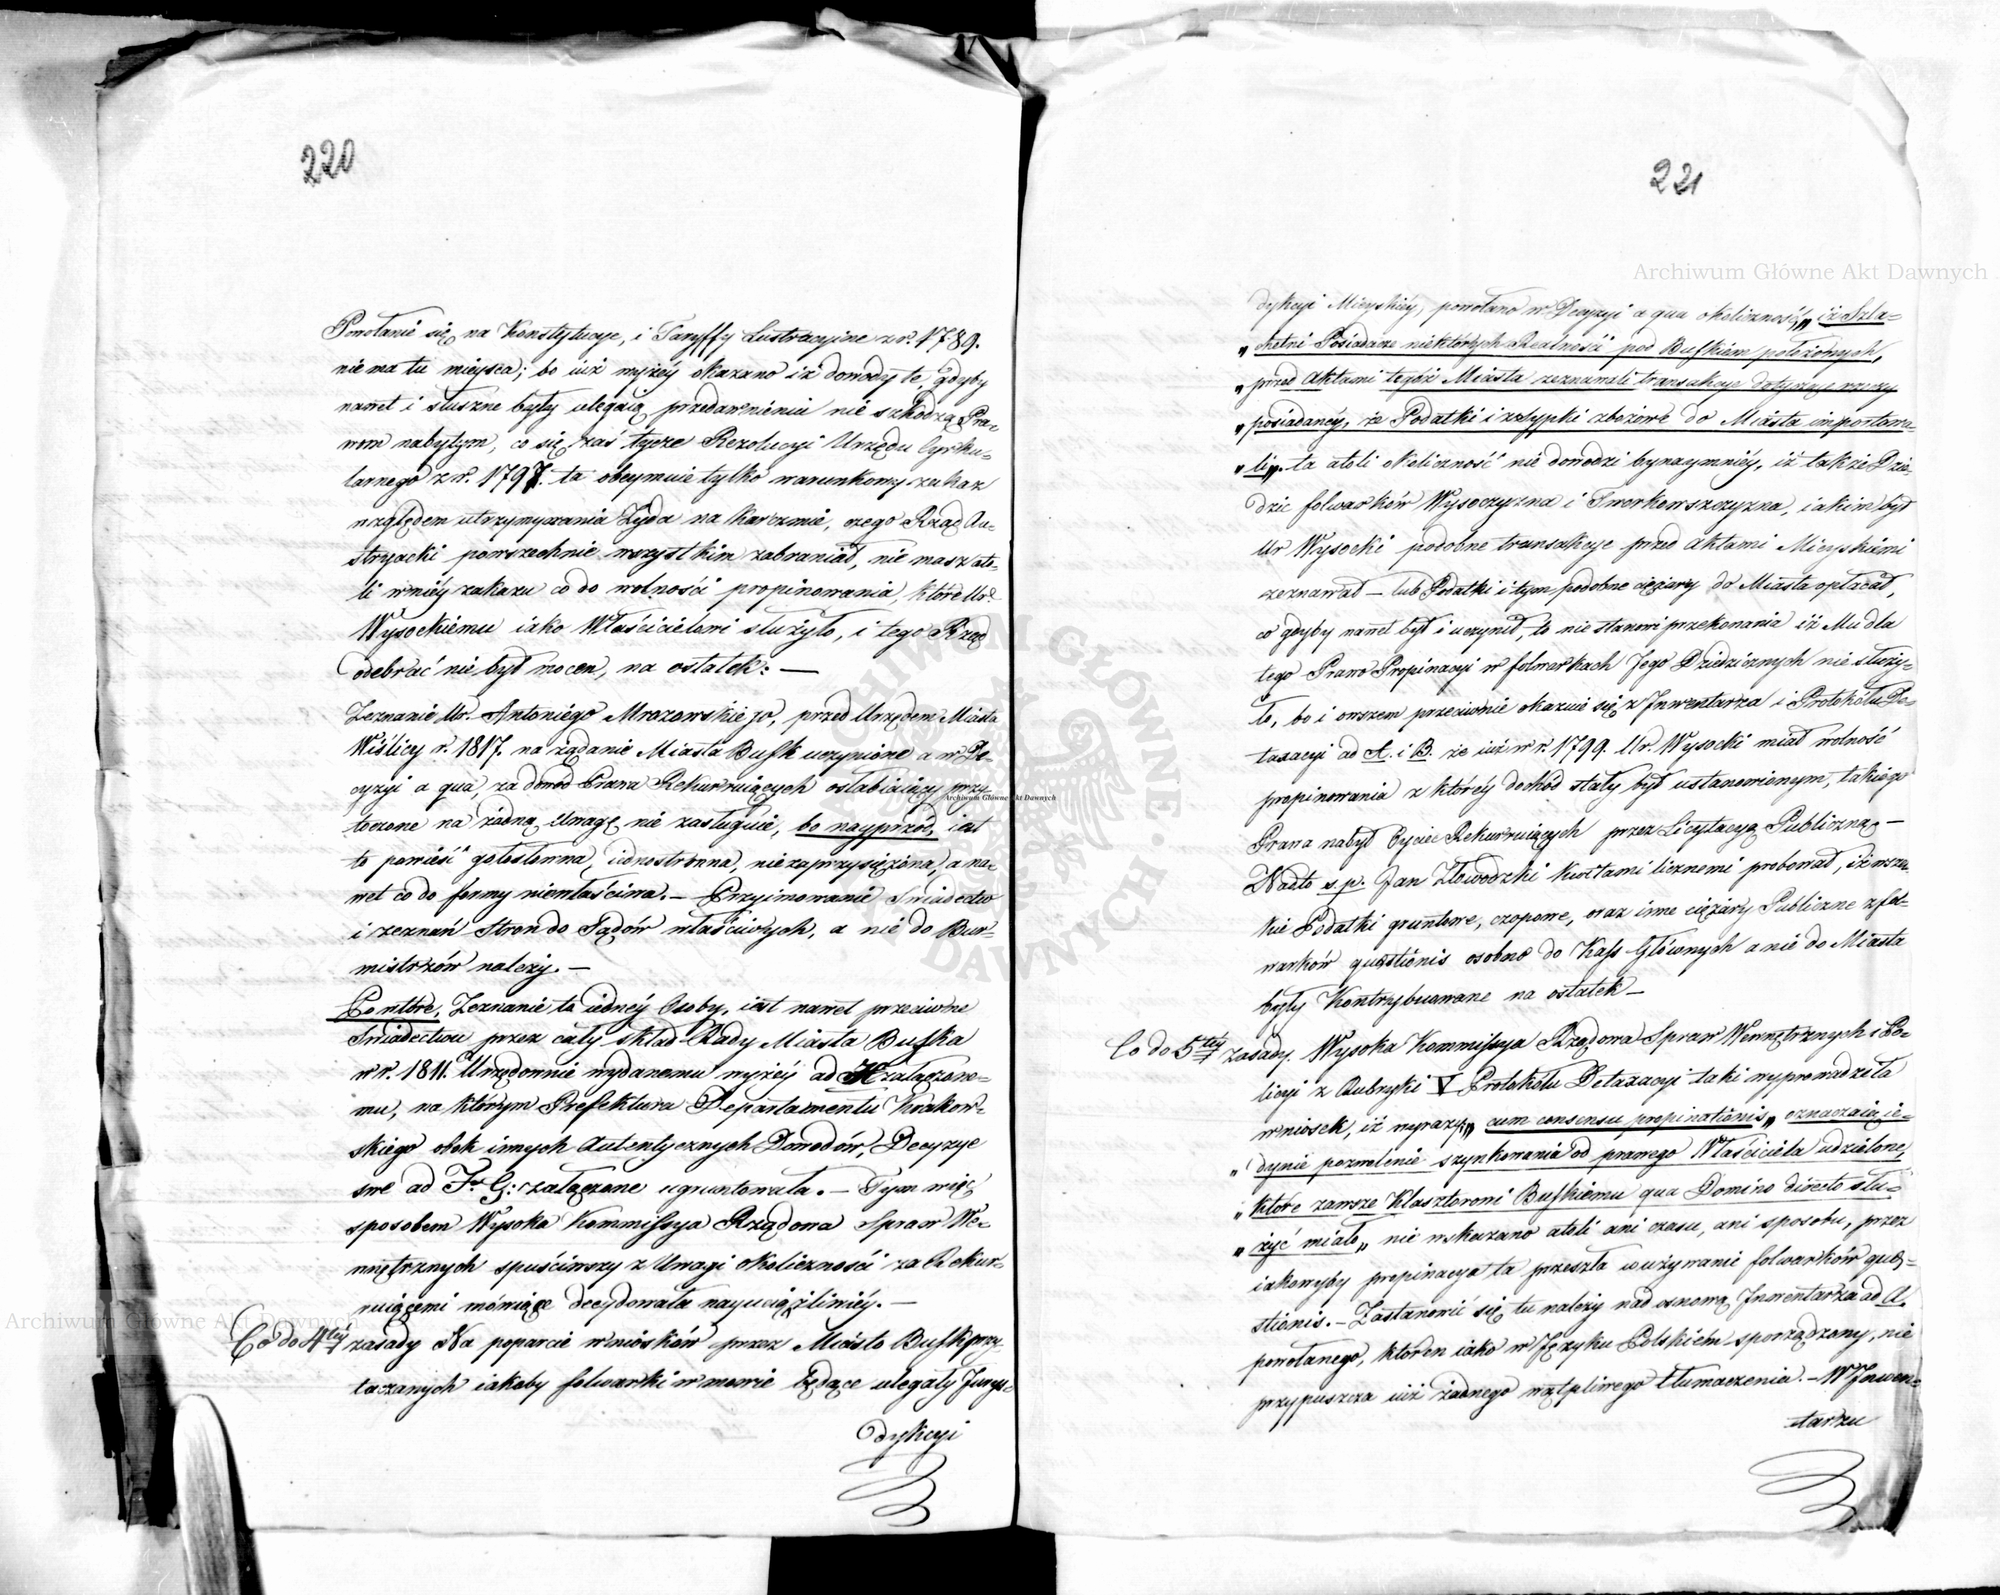 220
Powołanie się na Konstytucye, i Taryffy Lustracyine z r. 1789.
nie ma tu mieysca; bo iuż wyżey okazano iż dowody te, gdyby
nawet i słuszne były ulegaią przedawnieniu nie szkodzą Pra-
wom nabytym, co się zaś tycze Rezolucyi Urzędu Cyrku-
larnego z r. 1797. ta obeymuie tylko warunkowy zakaz
względem utrzymywania Żyda na karczmie, czego Rząd Au-
stryacki powszechnie wszystkim zabraniał, nie masz ato-
li w niéy zakazu co do wolności propinowania, które Ur.
Wysockiemu iako Właścicielowi służyło, i tego Rząd
odebrać nie był mocen, na ostatek: —
Zeznanie Ur. Antoniego Mrozowskiego, przed Urzędem Miasta
Wiślicy r. 1817. na żądanie Miasta Busk uczynione a w De-
cyzyi a qua, za dowód Prawa Rekurruiących osłabiaiący przy-
toczone na żadną Uwagę nie zasługuie, bo nayprzód, iest
to powieść gołosłowna, iednostronna, niezaprzysiężona, a na-
wet co do formy niewłaściwa. — Przyimowanie Świadectw
i zeznań Stron do Sądów właściwych, a nie do Bur-
mistrzów należy. —
Powtóre, Zeznanie to iednéy Osoby, iest nawet przeciwne
Świadectwu przez cały skład Rady Miasta Buska
w r. 1811. Urzędownie wydanemu wyżéy ad H załączone-
mu, na którym Prefektura Departamentu Krakow-
skiego obok innych Autentycznych Dowodów, Decyzye
swe ad F. G: załączone ugruntowała. — Tym więc
sposobem Wysoka Kommissya Rządowa Spraw We-
wnętrznych spuściwszy z Uwagi okoliczności za Rekur-
ruiącemi mówiące decydowała nayuciążliwiéy. —
Co do 4téy zasady Na poparcie wniosków przez Miasto Busk przy-
taczanych iakoby folwarki w mowie będące ulegały Jurys-
dykcyi
221
dykcyi Mieyskiéy, powołano w Decyzyi a qua okoliczność „iż Szla-
„chetni Posiadacze niektórych Realności pod Buskiem położonych,
„przed Aktami tegoż Miasta zeznawali transakcye dotyczące rzeczy
„posiadanéy, że Podatki i zsypki zbożowe do Miasta importowa-
„li„. ta atoli okoliczność nie dowodzi bynaymniéy, iż także Dzie-
dzic folwarków Wysoczyzna i Tworkowszczyzna, iakim był
Ur Wysocki podobne transakcye przed Aktami Mieyskiemi
zeznawał — lub Podatki i tym podobne ciężary do Miasta opłacał,
co gdyby nawet był i uczynił, to nie stanowi przekonania iż Mu dla
tego Prawo Propinacyi w folwarkach Jego Dziedzicznych nie służy-
ło, bo i owszem przeciwnie okazuie się z Inwentarza i Protokółu De-
taxacyi ad A. i B. że iuż w r. 1799. Ur. Wysocki miał wolność
propinowania z któréy dochód stały był ustanowionym, takiego
Prawa nabył Oyciec Rekurruiących przez Licytacyą Publiczną —
Nadto s.p. Jan Złowodzki kwitami licznemi probował, iż wszel-
kie Podatki gruntowe, czopowe, oraz inne ciężary Publiczne z fol-
warków quæstionis osobno do Kass Głównych a nie do Miasta
były Kontrybuowane na ostatek —
Co do 5téy zasady. Wysoka Kommissya Rządowa Spraw Wewnętrznych i Po-
licyi z Rubryki V Protokółu Detaxacyi taki wyprowadziła
wniosek, iż wyrazy „cum consensu propinationis„ oznaczaią ie-
„dynie pozwolenie szynkowania od prawego Właściciela udzielone,
„które zawsze Klasztorowi Buskiemu qua Domino directo słu-
„żyć miało„ nie wskazano atoli ani czasu, ani sposobu, przez
iakowyby propinacya ta przeszła w używanie folwarków quæ-
stionis. — Zastanowić się tu należy nad osnową Inwentarza ad A.
powołanego, któren iako w Języku Polskiém sporządzony, nie
przypuszcza iuż żadnego wątpliwego tłumaczenia. — W Inwen-
tarzu
Archiwum Główne Akt Dawnych